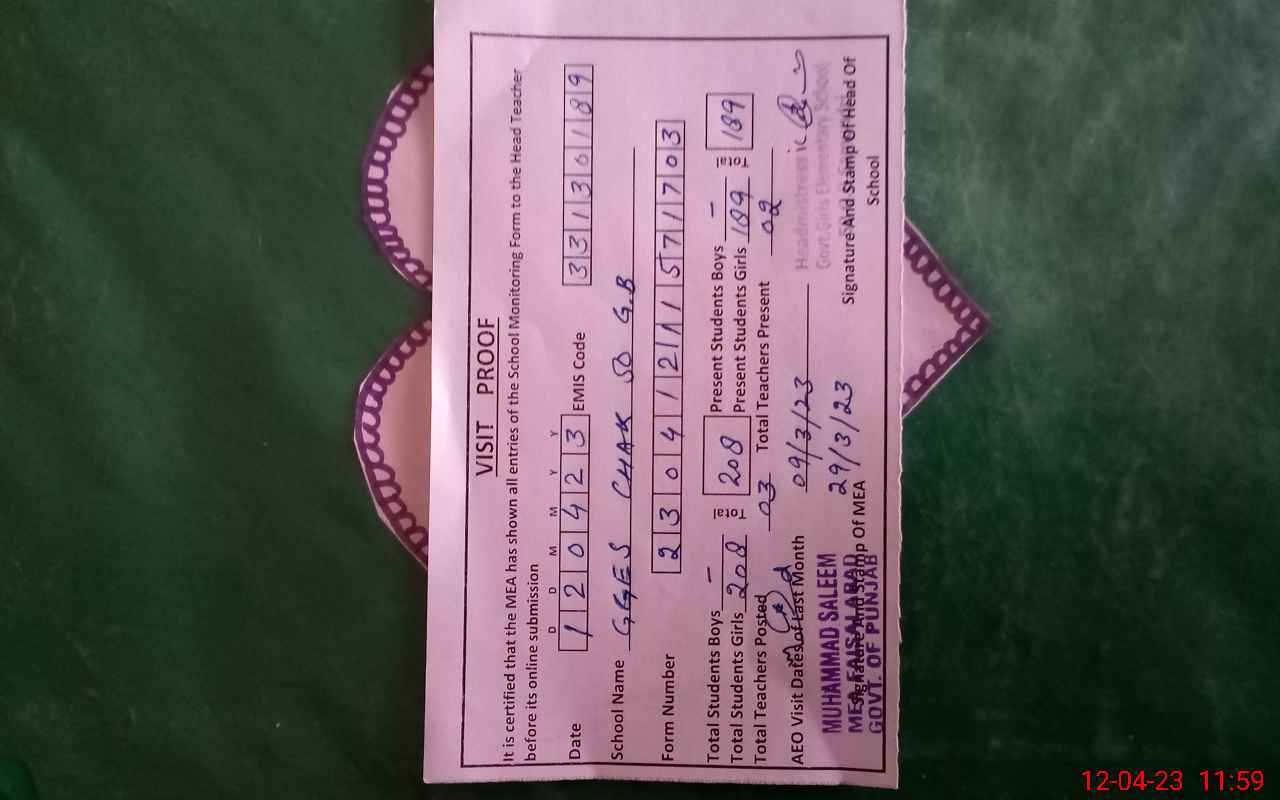 VISIT PROOF
It is certified that the MEA has shown all entries of the School Monitoring Form to the Head Teacher
before its online submission
D D M M Y Y
Date 1 2 0 4 2 3 EMIS Code 3 3 1 3 0 1 8 9
School Name GGES CHAK 50 G.B
Form Number 2 3 0 4 1 2 1 1 5 7 1 7 0 3
Total Students Boys – Present Students Boys –
Total Students Girls 208 Total 208 Present Students Girls 189 Total 189
Total Teachers Posted 03 Total Teachers Present 02
AEO Visit Dates of Last Month 09/3/23
29/3/23
Headmistress
Govt. Girls Elementary School
MUHAMMAD SALEEM
MEA FAISALABAD
GOVT. OF PUNJAB
Signature And Stamp Of MEA
Signature And Stamp Of Head Of
School
12-04-23 11:59